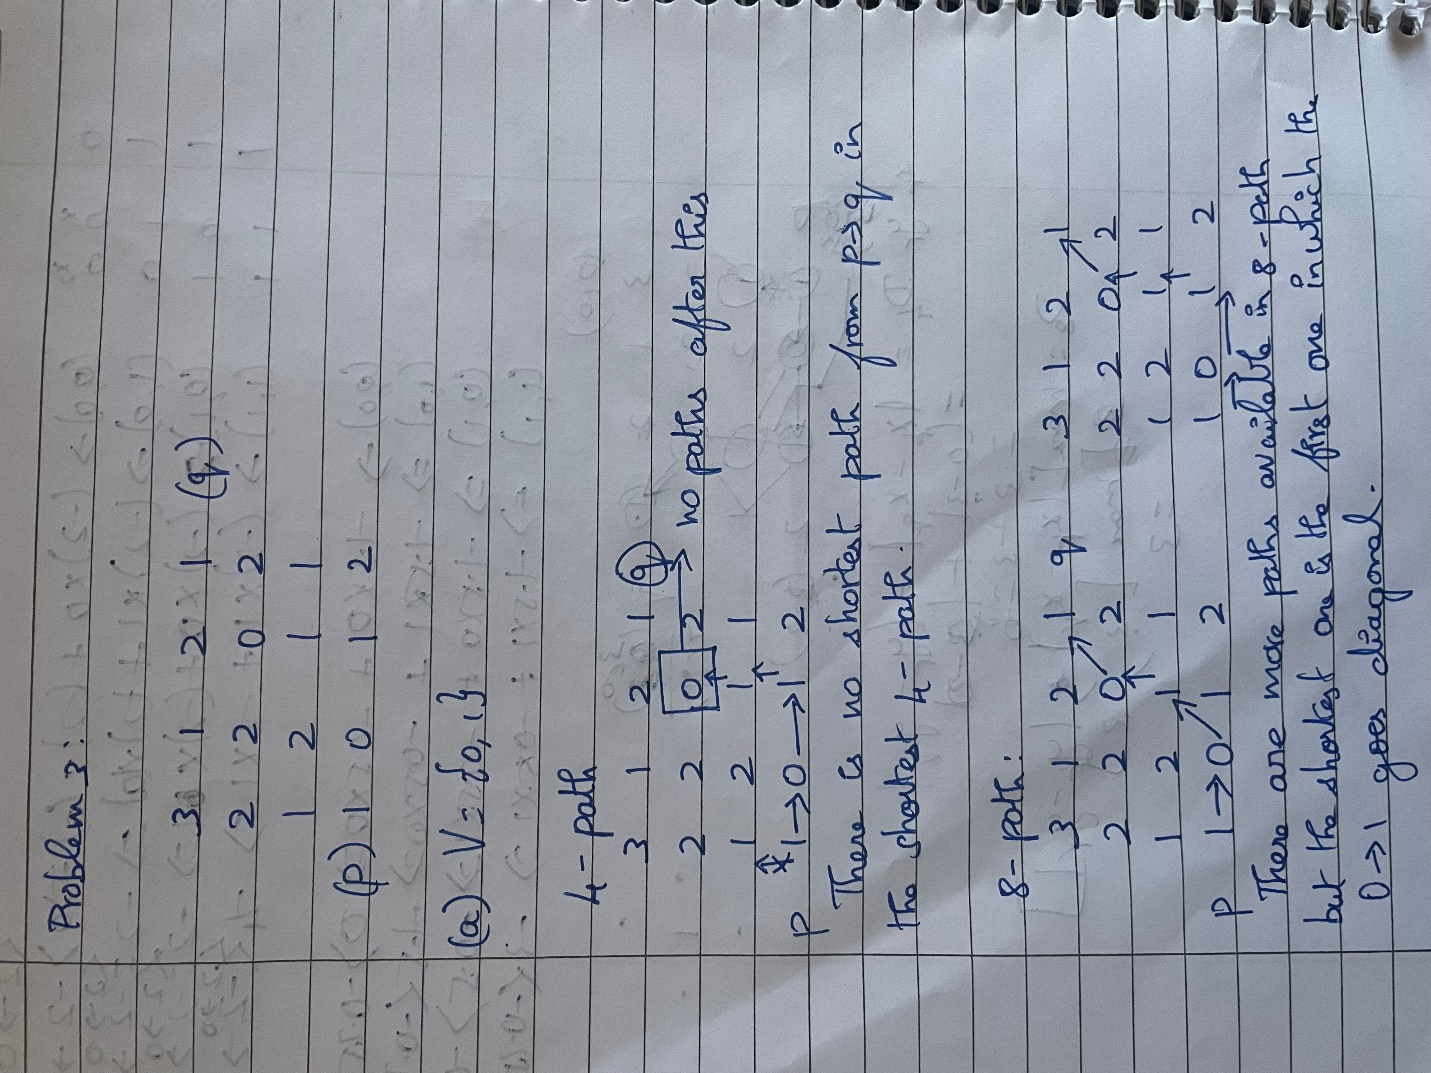 Problem 3:
3 1 2 1 (q)
2 2 0 2
1 2 1 1
(p) 1 0 1 2
(a) V = {0, 1}
4 - path
3 1 2 1 (q)
2 2 0 2 → no paths after this
1 2 1 1
p 1 → 0 → 1 2
There is no shortest path from p → q in
the shortest 4 - path.
8 - path:
3 1 2 1 q 3 1 2 1
2 2 0 2 2 2 0 2
1 2 1 1 1 2 1 1
p 1 → 0 1 2 1 0 1 2
There are more paths available in 8 - path
but the shortest one is the first one in which the
0 → 1 goes diagonal.